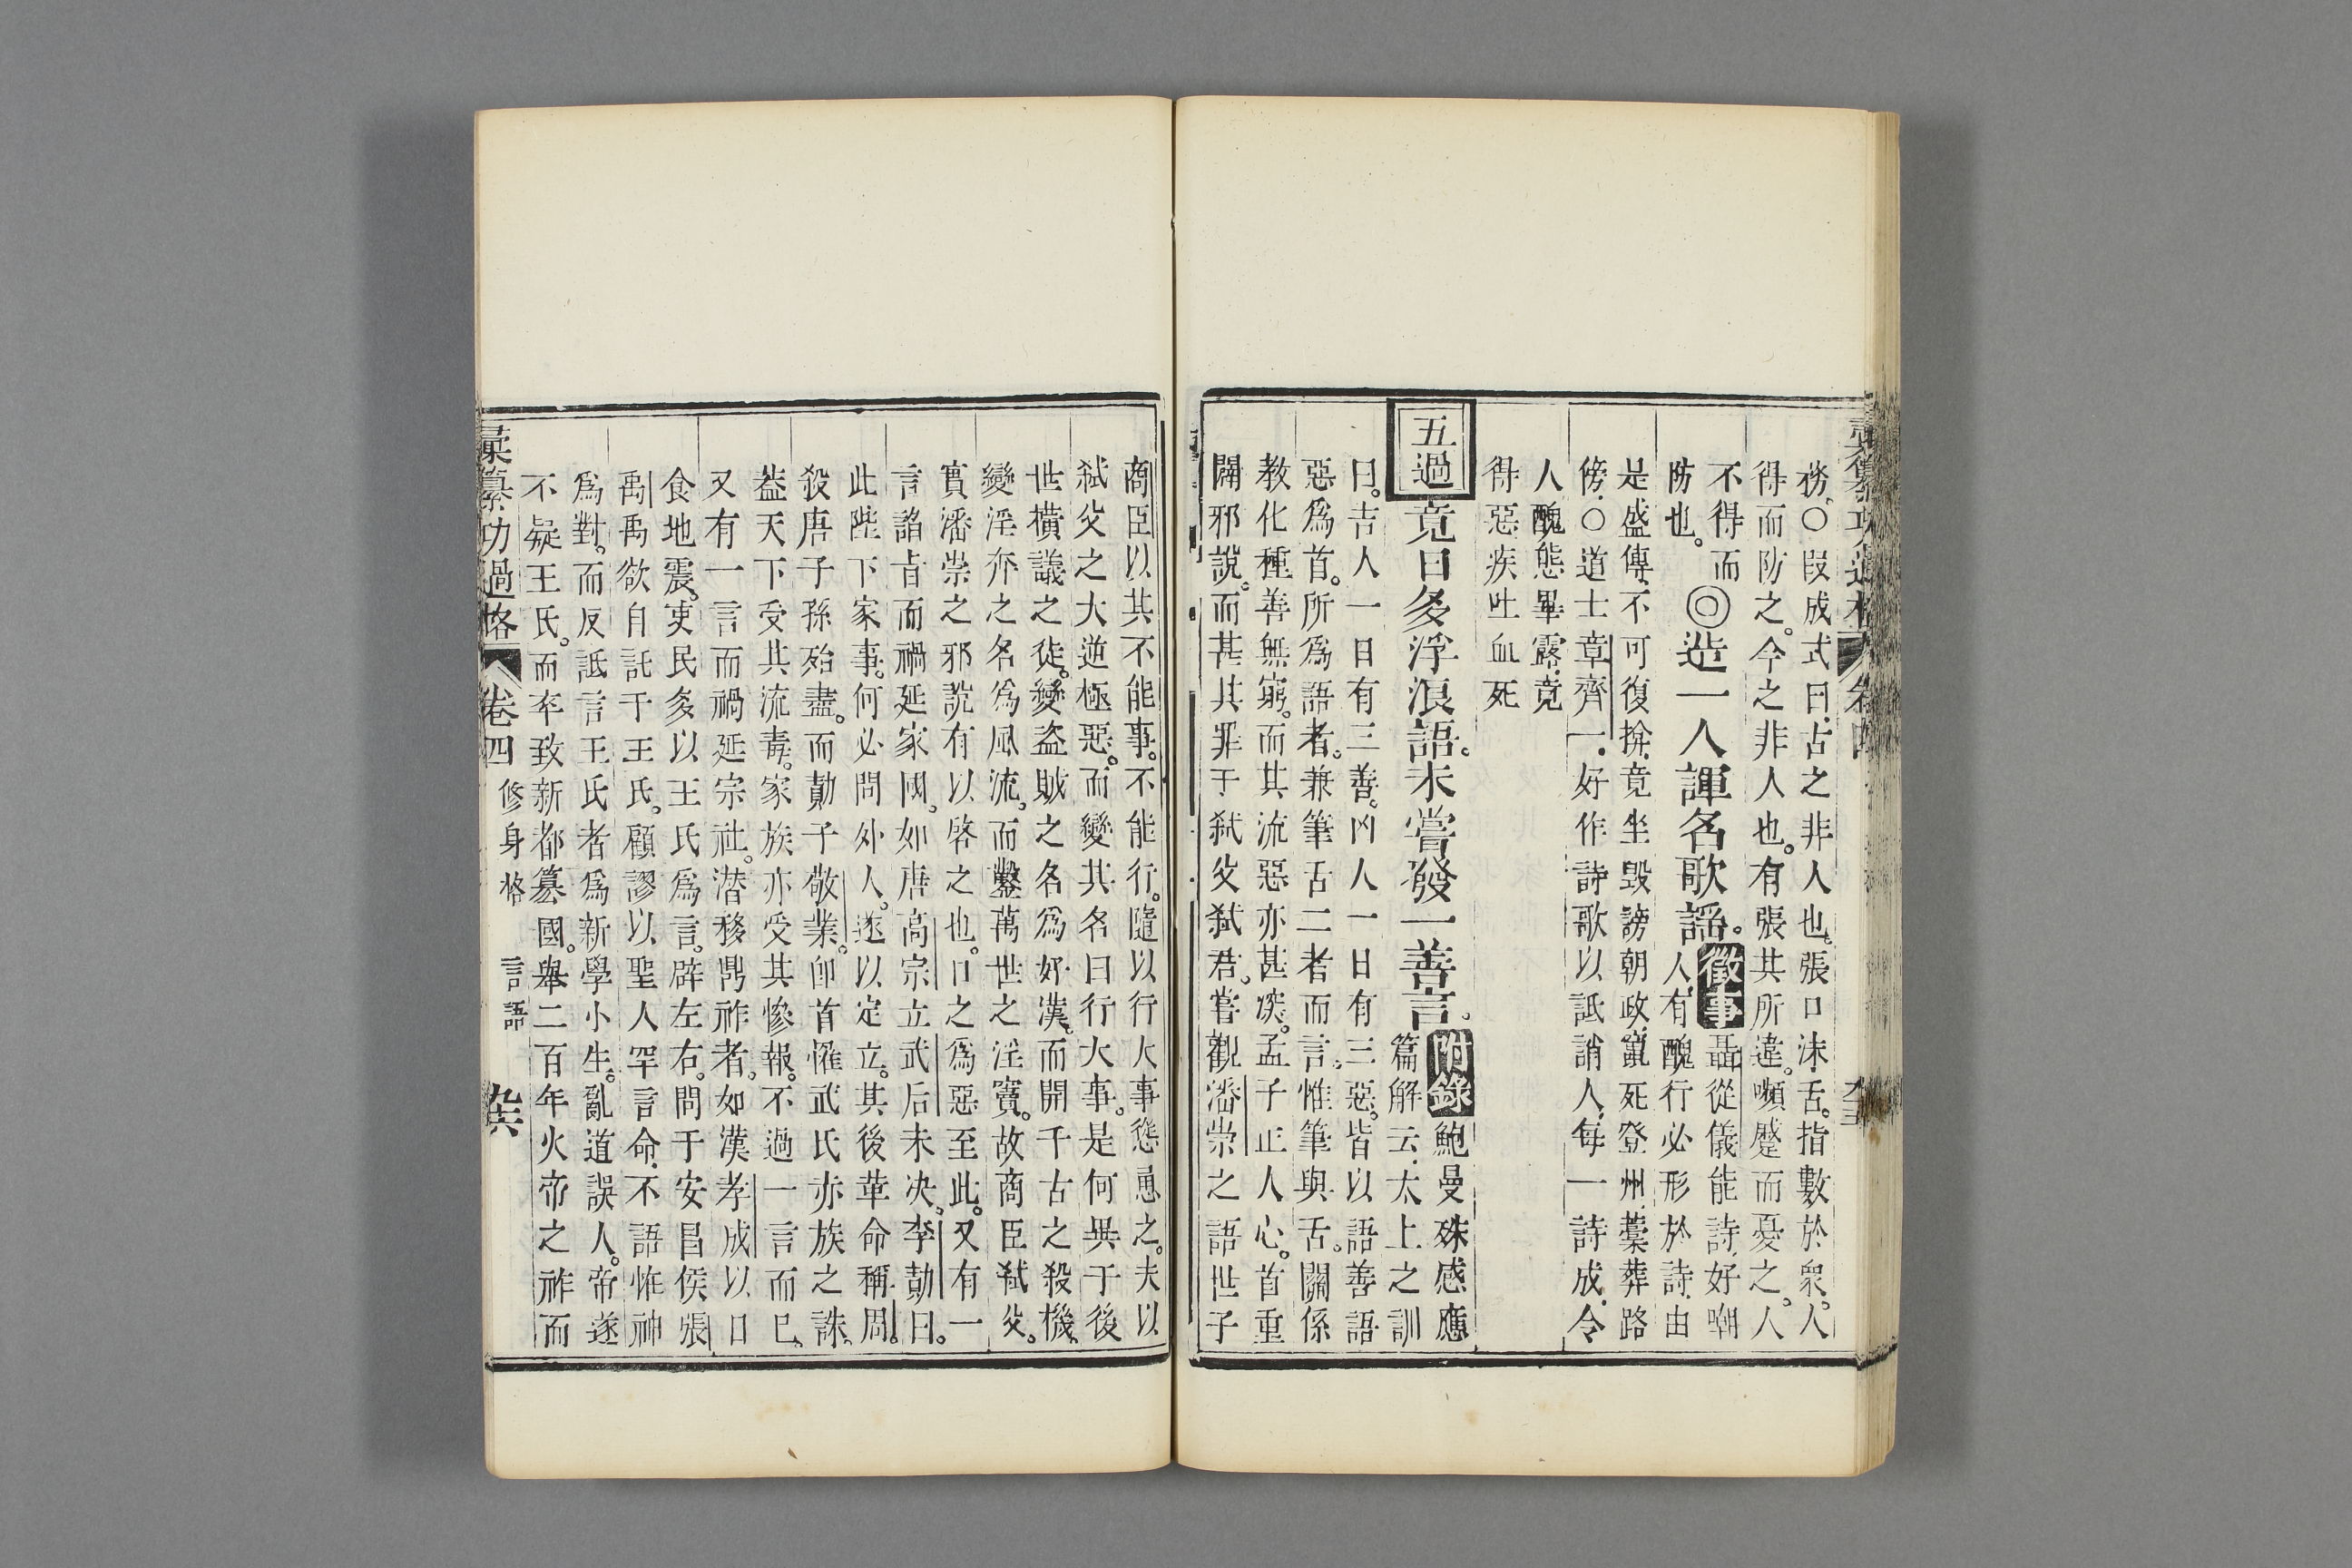 彙纂功過格 卷四
務。○段成式曰、古之非人也、張口沬舌。指數於衆。人
得而防之。今之非人也。有張其所違。嚬蹙而憂之。人
不得而
防也。◎造一人諢名歌謡。徵事聶從儀能詩、好嘲
人、有醜行必形於詩、由
是盛傳、不可復揜、竟坐毀謗朝政、竄死登州、藁葬路
傍、○道士章齊一、好作詩歌以詆誚人、每一詩成、令
人醜態畢露、竟
得惡疾吐血死
五過竟日多浮浪語。未嘗發一善言。附錄鮑曼殊感應
篇解云、太上之訓
曰。吉人一日有三善。凶人一日有三惡。皆以語善語
惡爲首。所爲語者。兼筆舌二者而言。惟筆與舌。關係
教化種善無窮。而其流惡亦甚深。孟子正人心。首重
闢邪說。而甚其罪于弑父弑君。嘗觀潘崇之語世子
商臣以其不能事。不能行。隨以行大事慫恿之。夫以
弑父之大逆極惡。而變其名曰行大事。是何異于後
世横議之徒。變盗賊之名爲好漢。而開千古之殺機。
變淫奔之名爲風流。而鑿萬世之淫竇。故商臣弑父。
實潘崇之邪說有以啓之也。口之爲惡至此。又有一
言諂旨而禍延家國。如唐高宗立武后未決、李勣曰。
此陛下家事。何必問外人。遂以定立。其後革命稱周。
殺唐子孫殆盡。而勣子敬業。卽首罹武氏赤族之誅。
葢天下受其流毒。家族亦受其慘報。不過一言而已。
又有一言而禍延宗社。潜移鼎祚者。如漢孝成以日
食地震。吏民多以王氏爲言。辟左右。問于安昌侯張
禹禹欲自託于王氏。顧謬以聖人罕言命、不語怪神
爲對。而反詆言王氏者爲新學小生。亂道誤人。帝遂
不疑王氏。而卒致新都篡國。舉二百年火帝之祚而
彙纂功過格 卷四 修身格 言語 九六